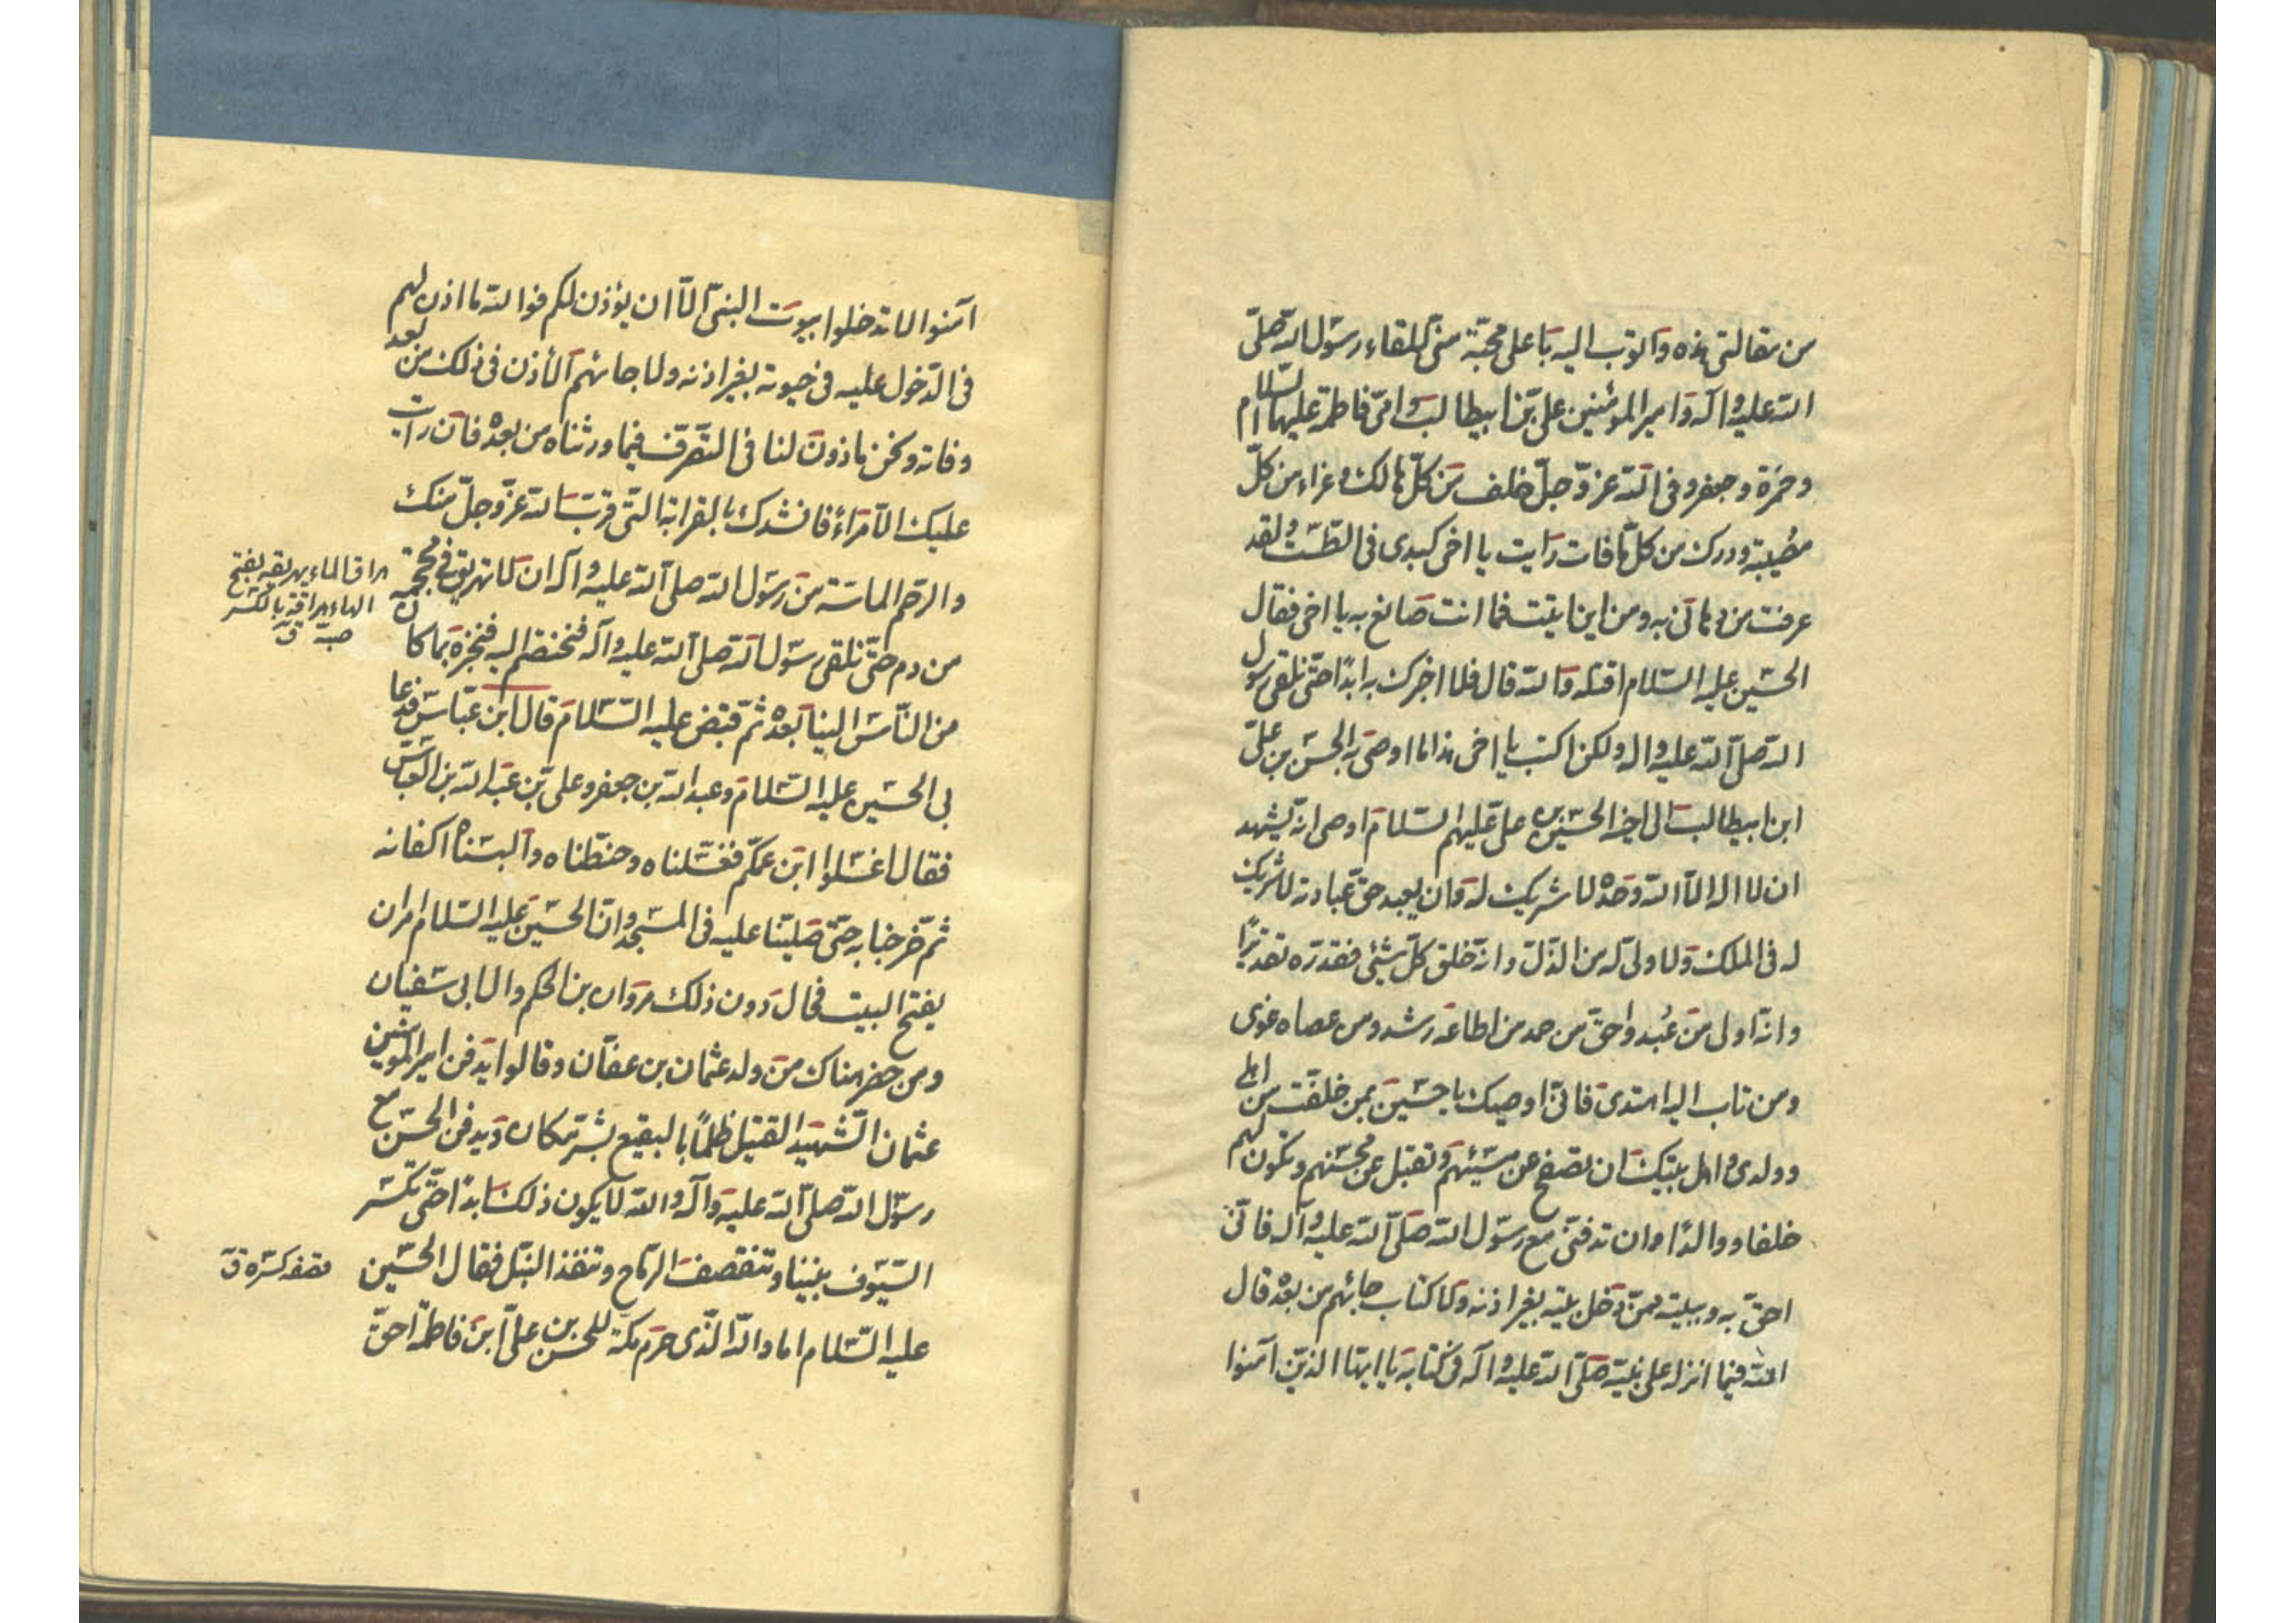 من مقالتى هذه واتوب اليه يا على محبّة منّى للقاء رسول الله صلّى
الله عليه وآله وامير المؤمنين علىّ بن ابيطالب وامّى فاطمة عليهما السّلام
وحمزة وجعفر وفى الله عزّ وجلّ خلف من كلّ هالك وعزاء من كلّ
مصيبة ودرك من كلّ ما فات رايت يا اخى كبدى فى الطّشت ولقد
عرفت من دهانى به ومن اين اتيت فما انت صانع به يا اخى فقال
الحسين عليه السّلام اقتله والله قال فلا اخبرك به ابدًا حتّى نلقى رسول
الله صلّى الله عليه واله ولكن اكتب يا اخى هذا ما اوصى به الحسن بن علىّ
ابن ابيطالب الى اخيه الحسين بن علىّ عليهم السّلام اوصى انّه يشهد
ان لا اله الّا الله وحده لا شريك له وان يعبد حقّ عبادته لا شريك
له فى الملك ولا ولىّ له من الذّلّ وانّه خلق كلّ شيئى فقدره تقديرًا
وانّه اولى من عُبد واحقّ من حمد من اطاعه رشد ومن عصاه غوى
ومن تاب اليه اهتدى فانّى اوصيك يا حسين بمن خلفت من اهلى
وولدى واهل بيتك ان تصفح عن مسيئهم وتقبل عن محسنهم وتكون لهم
خلفا ووالدًا وان تدفنّى مع رسول الله صلّى الله عليه وآله فانّى
احقّ به وببيته ممّن دخل بيته بغير اذنه ولا كتاب جائهم من بعده قال
الله فيما انزله على نبيّه صلّى الله عليه وآله فى كتابه يا ايها الذين آمنوا
آمنوا لا تدخلوا بيوت النبىّ الّا ان يؤذن لكم فوالله ما اذن لهم
فى الدّخول عليه فى حيوته بغير اذنه ولا جائهم الأذن فى ذلك من بعد
وفاته ونحن ماذون لنا فى التّصرّف فيما ورثناه من بعده فان رات
عليك الامراة فانشدك بالقرابة الّتى قرب الله عزّ وجلّ منك
والرّحم الماسّة من رسول الله صلّى الله عليه وآله ان لا تهريق فىّ محجمة
هراق الماء يهريقه بفتح
الهاء هراقة بالكسر
صبّه ق
من دم حتّى نلقى رسول الله صلّى الله عليه وآله فنختصم اليه فنخبره بما كان
من النّاس الينا بعده ثمّ قبض عليه السّلام قال ابن عبّاس فدعا
بى الحسين عليه السّلام وعبد الله بن جعفر وعلىّ بن عبد الله بن العبّاس
فقال اغسلوا ابن عمّكم فغسّلناه وحنّطناه والبسناه اكفانه
ثمّ خرجنا به حتّى صلّينا عليه فى المسجد وانّ الحسين عليه السّلام امر ان
يفتح البيت فحال دون ذلك مروان بن الحكم وال ابى سفيان
ومن حضر هناك من ولد عثمان بن عفّان وقالوا يدفن امير المؤمنين
عثمان الشّهيد القتيل ظلمًا بالبقيع بشرّ مكان ويدفن الحسن مع
رسول الله صلّى الله عليه وآله والله لا يكون ذلك ابدًا حتّى تكسّر
السّيوف بيننا وتنقصف الرّماح وتنفذ النّبل فقال الحسين
قصفه كسره ق
عليه السّلام اما والله الّذى حرم مكّة للحسن بن علىّ ابن فاطمة احقّ